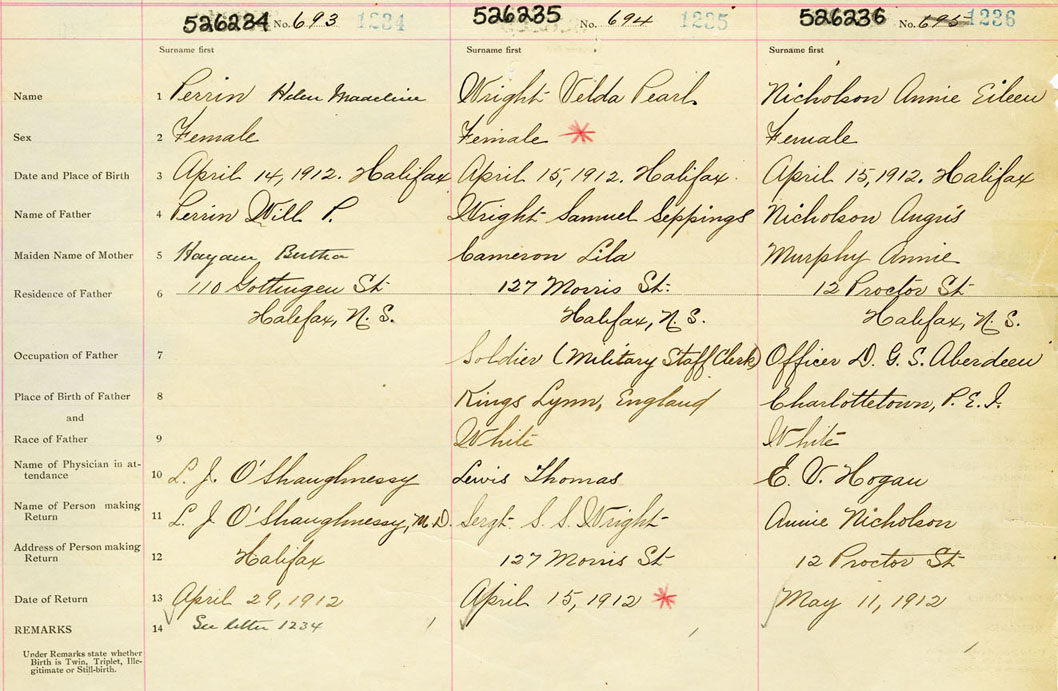 526234 No. 693 1234 526235 No. 694 1235 526236 No. 695 1236
Surname first Surname first Surname first
Name 1 Perrin Helen Madeline Wright Velda Pearl. Nicholson Annie Eileen
Sex 2 Female Female Female
Date and Place of Birth 3 April 14, 1912. Halifax April 15, 1912. Halifax. April 15, 1912. Halifax
Name of Father 4 Perrin Will P. Wright Samuel Seppings Nicholson Angus
Maiden Name of Mother 5 Bertha Cameron Lila Murphy Annie
Residence of Father 6 110 Gottingen St 127 Morris St. 12 Proctor St
Halifax, N. S. Halifax, N. S. Halifax, N. S.
Occupation of Father 7 Soldier (Military Staff Clerk) Officer D. G. S. Aberdeen
Place of Birth of Father 8 Kings Lynn, England Charlottetown, P. E. I.
and
Race of Father 9 White White
Name of Physician in at-
tendance 10 L. J. O'Shaughnessy Lewis Thomas E. V. Hogan
Name of Person making
Return 11 L. J. O'Shaughnessy, M. D. Sergt. S. S. Wright Annie Nicholson
Address of Person making
Return 12 Halifax 127 Morris St 12 Proctor St
Date of Return 13 April 29, 1912 April 15, 1912 May 11, 1912
REMARKS 14 See letter 1234
Under Remarks state whether
Birth is Twin, Triplet, Ille-
gitimate or Still-birth.